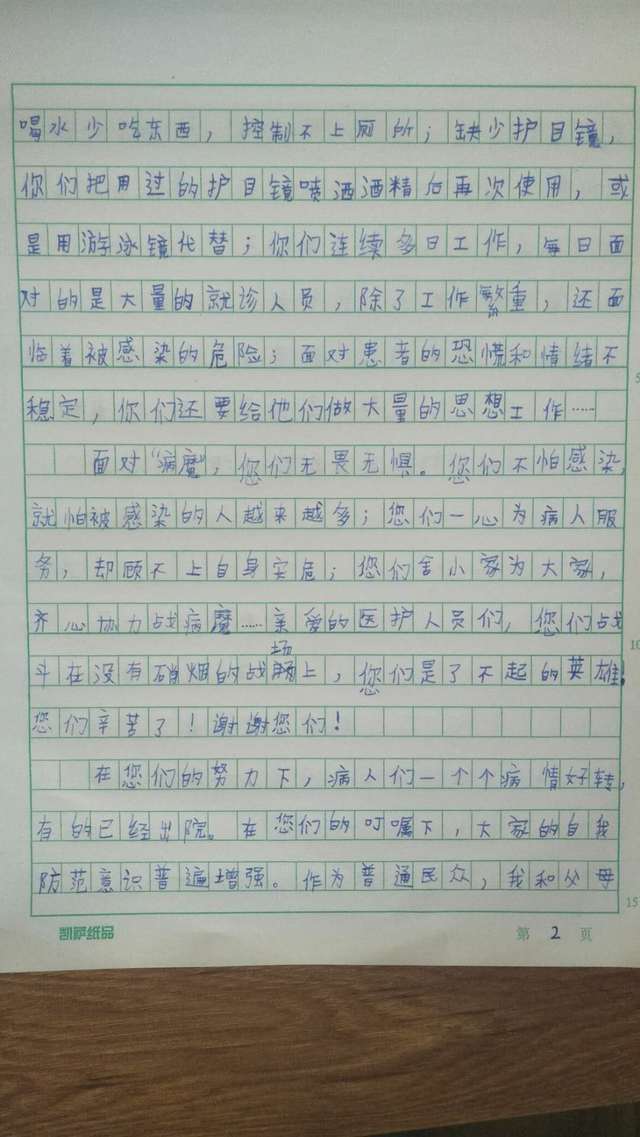 喝水少吃东西，控制不上厕所；缺少护目镜，
你们把用过的护目镜喷洒酒精后再次使用，或
是用游泳镜代替；你们连续多日工作，每日面
对的是大量的就诊人员，除了工作繁重，还面
临着被感染的危险；面对患者的恐慌和情绪不
稳定，你们还要给他们做大量的思想工作……
面对“病魔”，您们无畏无惧。您们不怕感染，
就怕被感染的人越来越多；您们一心为病人服
务，却顾不上自身安危；您们舍小家为大家，
齐心协力战病魔……亲爱的医护人员们，您们战
斗在没有硝烟的战场上，您们是了不起的英雄！
您们辛苦了！谢谢您们！
在您们的努力下，病人们一个个病情好转，
有的已经出院。在您们的叮嘱下，大家的自我
防范意识普遍增强。作为普通民众，我和父母
凯萨纸品
第 2 页
5
10
15